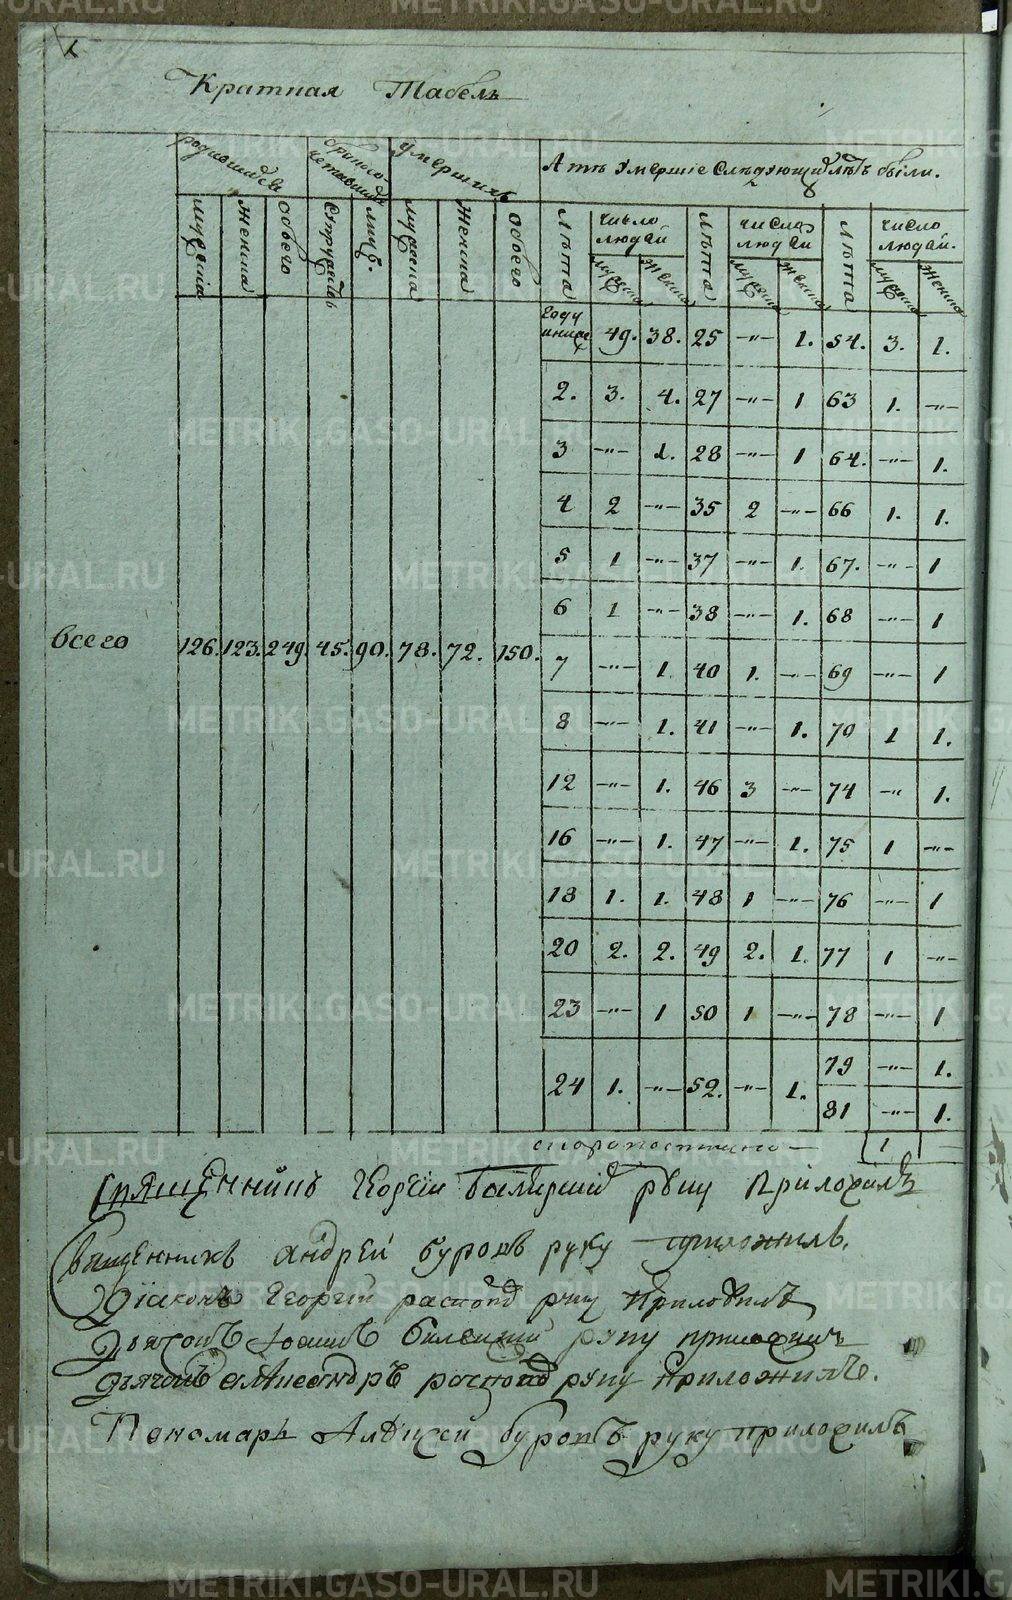 Краткая Табель
родившихся
бракосочетавшихся
умершихъ
А тѣ умершіе слѣдующихъ лѣтъ были.
мужеска
женска
обоего
супружествъ
лицъ.
мужеска
женска
обоего
лѣта
число людей
мужеска
женска
лѣта
число людей
мужеска
женска
лѣта
число людей.
мужеска
женска
году и ниже 49. 38. 25 -"- 1. 54. 3. 1.
2. 3. 4. 27 -"- 1 63 1. -"-
3 -"- 1. 28 -"- 1 64. -"- 1.
4 2 -"- 35 2 -"- 66 1. 1.
5 1 -"- 37 -"- 1. 67. -"- 1
6 1 -"- 38 -"- 1. 68 -"- 1
всего 126. 123. 249 45. 90. 78. 72. 150.
7 -"- 1. 40 1. -"- 69 -"- 1
8 -"- 1. 41 -"- 1. 70 1 1.
12 -"- 1. 46 3 -"- 74 -"- 1.
16 -"- 1. 47 -"- 1. 75 1 -"-
18 1. 1. 48 1 -"- 76 -"- 1
20 2. 2. 49 2. 1. 77 1 -"-
23 -"- 1 50 1 -"- 78 -"- 1
24 1. -"- 52. -"- 1. 79 -"- 1.
81 -"- 1.
скоропостижно 1
Священникъ Георгій руку приложилъ
Священникъ Андрей Буровъ руку приложилъ.
Діаконъ Георгій руку приложилъ
Дьячокъ руку приложилъ
Дьячокъ Александръ руку приложилъ.
Пономарь Алексей Буровъ руку приложилъ
METRIKI.GASO-URAL.RU